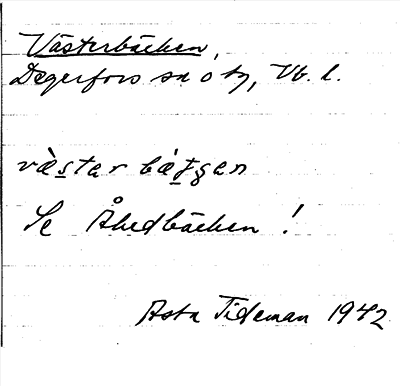 Västerbäcken,
Degerfors sn o tg, Vb. l.
vàstar bàtgen
Se Åhedbäcken !
Asta Tideman 1942